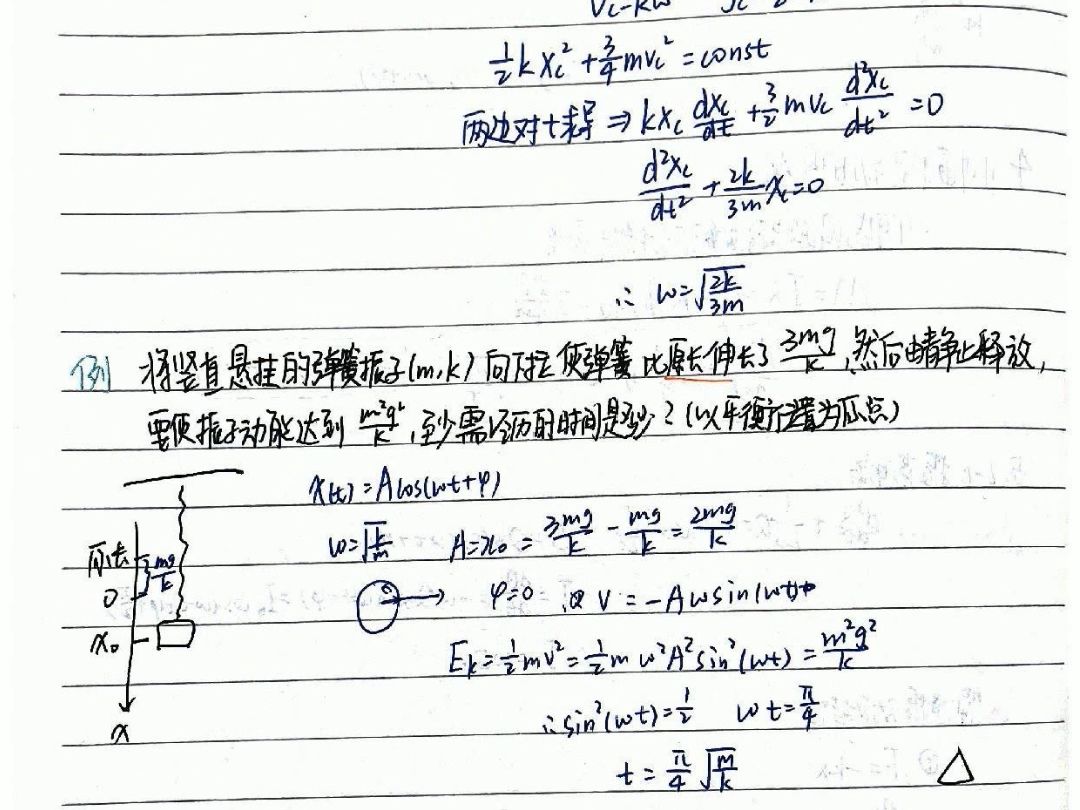 ½kx_c² + ¾mv_c² = const
两边对t求导 ⇒ kx_c dx_c/dt + 3/2 mv_c d²x_c/dt² = 0
d²x_c/dt² + 2k/3m x_c = 0
∴ ω = √(2k/3m)
例 将竖直悬挂的弹簧振子(m,k)向下拉使弹簧比原长伸长了 3mg/k,然后由静止释放,
要使振子动能达到 m²g²/k,至少需经历的时间是多少?(以平衡位置为原点)
x(t) = Acos(ωt+φ)
ω = √(k/m) A = x₀ = 3mg/k - mg/k = 2mg/k
原长 mg/k
O φ=0 v = -Aωsin(ωt)
x₀
E_k = ½mv² = ½mω²A²sin²(ωt) = m²g²/k
∴ sin²(ωt) = ½ ωt = π/4
x
t = π/4 √(m/k)